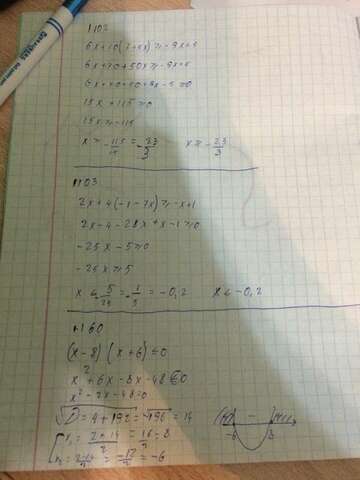 №102
6x+10(7+5x)≥-9x+5
6x+70+50x≥-9x+5
6x+70+50+9x-5≥0
15x+115≥0
15x≥-115
x≥-115/15=-23/3 x≥-23/3
№103
2x+4(-1-7x)≥-x+1
2x-4-28x+x-1≥0
-25x-5≥0
-25x≥5
x≤-5/25=-1/5=-0,2 x≤-0,2
№160
(x-8)(x+6)≤0
x²+6x-8x-48≤0
x²-2x-48=0
√D=4+192=√196=14
x₁=2+14/2=16/2=8
x₂=2-14/2=-12/2=-6
-
-6 8